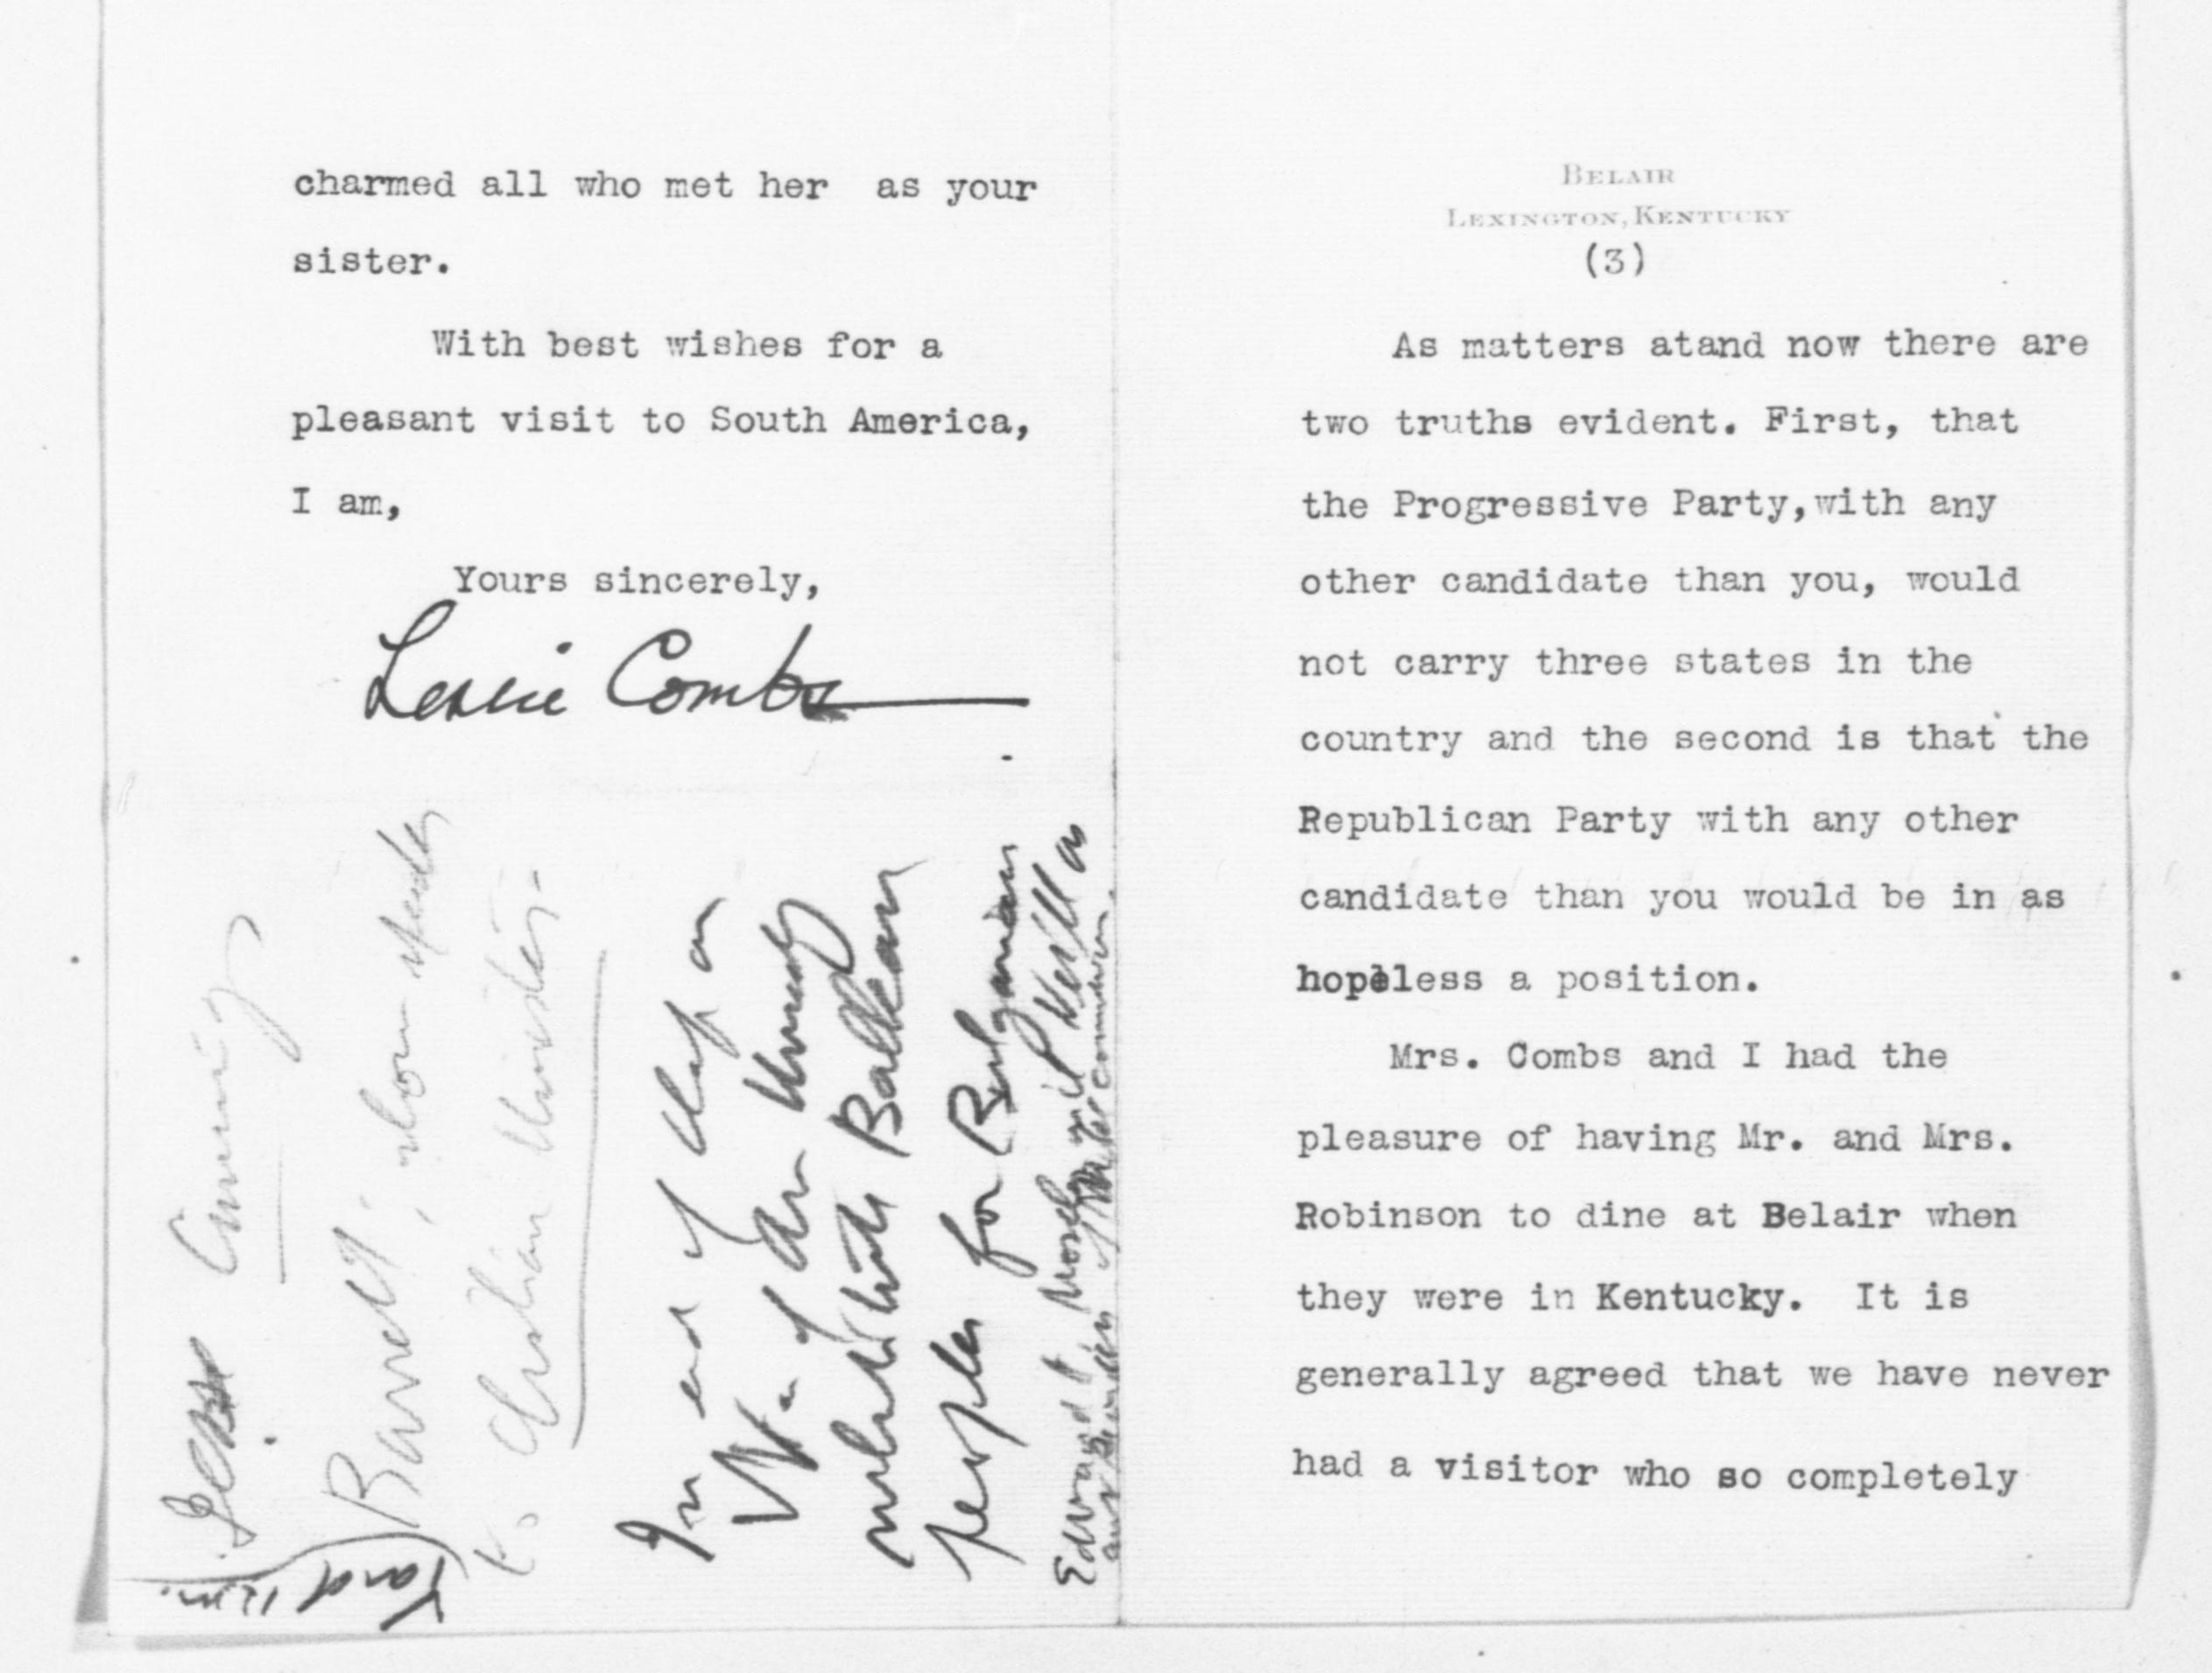 charmed all who met her as your
sister.
With best wishes for a
pleasant visit to South America,
I am,
Yours sincerely,
Leslie Combs
Barrett
Christian Ministers
In end of Chap on
War of
Balkan
peoples for Bulgarian
BELAIR
LEXINGTON, KENTUCKY
(3)
As matters atand now there are
two truths evident. First, that
the Progressive Party,with any
other candidate than you, would
not carry three states in the
country and the second is that the
Republican Party with any other
candidate than you would be in as
hopeless a position.
Mrs. Combs and I had the
pleasure of having Mr. and Mrs.
Robinson to dine at Belair when
they were in Kentucky. It is
generally agreed that we have never
had a visitor who so completely